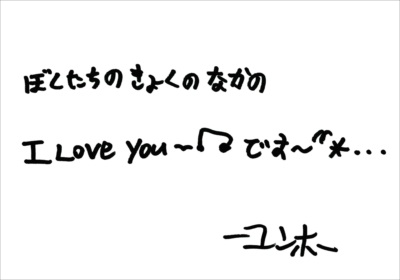 ぼくたちのきょくのなかの
I Love You~♫ です~^^*...
ーユンホー